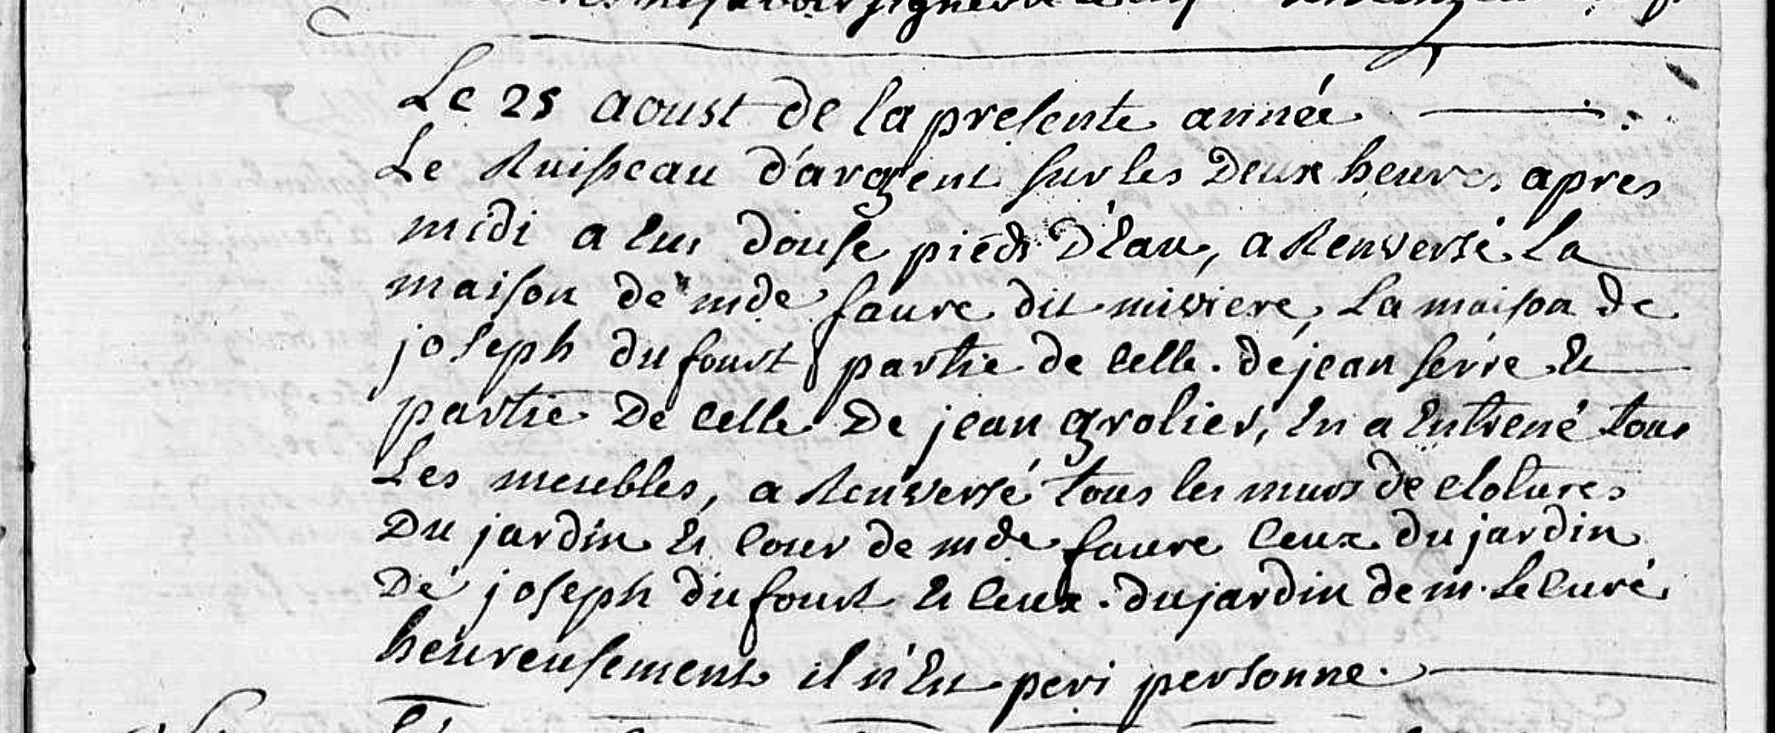 Le 25 aoust de la presente année
Le Ruisseau d'argent sur les Deux heures apres
midi a eut douse pieds D'Eau, a Renversé La
maison de mde faure dit miviere, La maison de
joseph dufourt partie de celle de jean serre Et
partie De celle De jean grolier, En a Entrené tous
Les meubles, a Renversé tous les murs de clotures
Du jardin Et Cour de mde faure Ceux du jardin
De joseph dufourt Et Ceux du jardin de m. Le Curé
heureusement il n'Est peri personne.